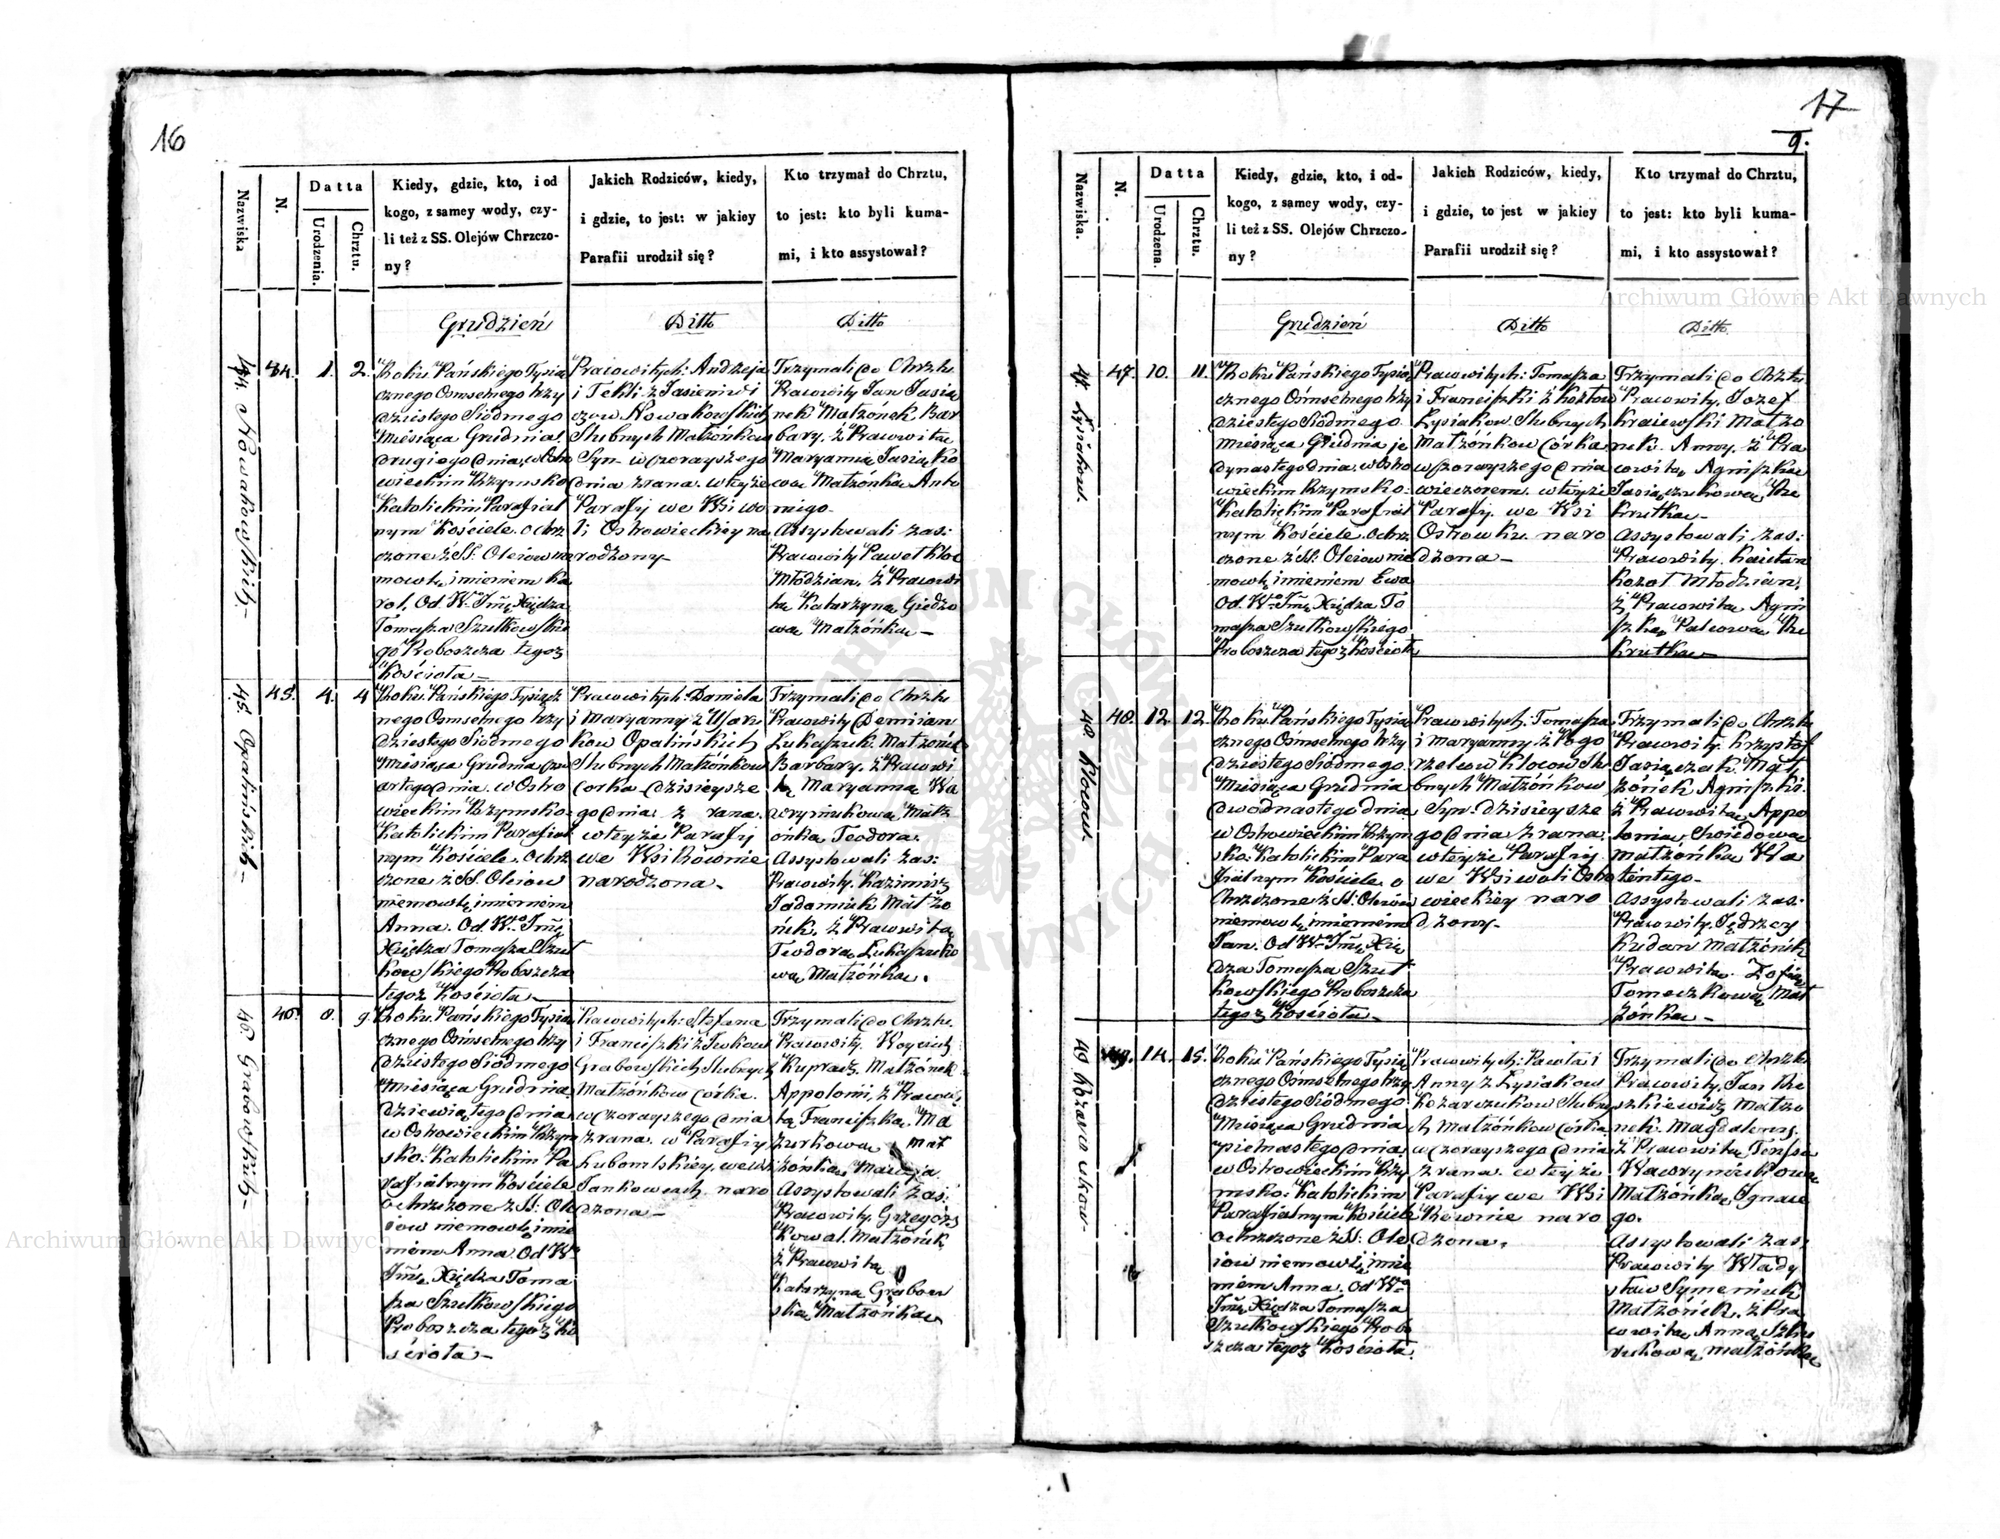 16
Nazwiska
N.
Datta
Urodzenia.
Chrztu.
Kiedy, gdzie, kto, i od
kogo, z samey wody, czy-
li też z SS. Olejów Chrzczo-
ny?
Jakich Rodziców, kiedy,
i gdzie, to jest: w jakiey
Parafii urodził się?
Kto trzymał do Chrztu,
to jest: kto byli kuma-
mi, i kto assystował?
Grudzień
Ditto
Ditto
44. Nowakowskich.
44.
1.
2.
Roku Pańskiego Tysią
cznego Osmsetnego trzy
dziestego Siódmego
Miesiąca Grudnia
drugiego dnia, w Ostro
wieckim Rzymsko
Katolickim Parafial
nym Kościele ochrz
czone z SS. Olejow nie
mowlę imieniem Ka
rol. Od W. Jmć Xiędza
Tomasza Szutkowskie
go Proboszcza tegoż
Kościoła
Pracowitych: Andrzeja
i Tekli z
Nowakowskich
Slubnych Małżonkow
Syn wczorayszego
dnia z rana. w teyże
Parafij we Wsi Wo
li Ostrowieckiey na
rodzony
Trzymali do Chrztu
Pracowity Jan Jasia
nek Małżonek Bar
bary. z Pracowitą
Maryanną Jasiąko
wą Małżonką Anto
niego
Assystowali zaś:
Pracowity Paweł Kloc
Młodzian. z Pracowi
tą Katarzyną Giedzo
wą Małżonką
45. Opalińskich
45.
4.
4
Roku Pańskiego Tysiącz
nego Osmsetnego trzy
dziestego Siódmego
Miesiąca Grudnia czw
artego dnia. w Ostro
wieckim Rzymsko
Katolickim Parafial
nym Kościele. ochrz
czone z SS. Olejow
niemowlę imieniem
Anna. Od W. Jmć
Xiędza Tomasza Szut
kowskiego Proboszcza
tegoż Kościoła
Pracowitych: Daniela
i Maryanny z
kow Opalińskich
Slubnych Małżonkow
Corka dzisieysze
go dnia z rana.
w teyże Parafij
we Wsi Rownie
narodzona
Trzymali do Chrztu
Pracowity Demijan
Łukaszuk. Małżonek
Barbary. z Pracowi
tą Maryanną Wa
wryniukową Małż
onką Teodora.
Assystowali zaś:
Pracowity. Kazimirz
Małżo
nek. z Pracowitą
Teodorą Łukaszuko
wą Małżonką.
46 Grabowskich
46.
8.
9.
Roku Pańskiego Tysią
cznego Osmsetnego trzy
dziestego Siódmego
Miesiąca Grudnia
dziewiątego dnia
w Ostrowieckim Rzym
sko: Katolickim Pa
rafialnym Kościele
ochrzczone z SS: Ole
iow niemowlę imie
niem Anna. Od W.
Jmć Xiędza Toma
sza Szutkowskiego
Proboszcza tegoż Ko
ścioła
Pracowitych: Stefana
i Franciszki z
Grabowskich Slubnych
Małżonkow córka.
wczorayszego dnia
z rana. w Parafiy
Lubomlskiéy, we wsi
Jankowcach naro
dzona
Trzymali do Chrztu.
Pracowity. Woyciech
Małżonek
Appolonii, z Pracowi
tą Franciszką Ma
zurkową Mał
żonką Macieja
Assystowali zaś:
Pracowity. Grzegorz
Kowal. Małżonek
z Pracowitą
Katarzyną Grabow
ską Małżonką
17
9.
Nazwiska.
N.
Datta
Urodzena.
Chrztu.
Kiedy, gdzie, kto, i od-
kogo, z samey wody, czy-
li też z SS. Olejów Chrzczo-
ny?
Jakich Rodziców, kiedy,
i gdzie, to jest w jakiey
Parafii urodził się?
Kto trzymał do Chrztu,
to jest: kto byli kuma-
mi, i kto assystował?
Grudzień
Ditto
Ditto
47. Łysiakow.
47.
10.
11.
Roku Pańskiego Tysią
cznego Osmsetnego trzy
dziestego Siódmego.
Miesiąca Grudnia je
dynastego dnia. w Ostro
wieckim Rzymsko:
Katolickim Parafial
nym Kościele. ochrz
czone z SS. Olejow nie
mowlę imieniem Ewa
Od. W. Jmć Xiędza To
masza Szutkowskiego
Proboszcza tegoż Kościoła
Pracowitych: Tomasza
i Franciszki z Kozłow
Łysiakow. Slubnych
Małżonkow Córka
wczorayszego dnia
wieczorem. w teyże
Parafij. we Wsi
Ostrowku. naro
dzona
Trzymali do Chrztu
Pracowity. Jozef
Kraiewski Małżo
nek. Anny. z Pra
cowitą Agniszką
Assystowali zaś:
Pracowity. Kaietan
Kozoł Młodzian,
z Pracowitą Agni
szką
48 Klocow.
48.
12.
12.
Roku Pańskiego Tysią
cznego Osmsetnego trzy
dziestego Siódmego.
Miesiąca Grudnia
dwódnastego dnia
w Ostrowieckim Rzym
sko: Katolickim Para
fialnym Kościele o
chrzczone z SS: Olejów
niemowlę imieniem
Jan. Od W. Jmć Xię
dza Tomasza Szut
kowskiego Proboszcza
tegoż Kościoła
Pracowitych. Tomasza
i Maryanny z Pogo
rzelcow Klocow Slu
bnych Małżonkow
Syn. dzisieysze
go dnia z rana.
w teyże Parafiy
we Wsi Woli Ostro
wieckiey naro
dzony
Trzymali do Chrztu
Pracowity. Krzysztof
Jasiączak. Mał
żonek Agniszki.
z Pracowitą Appo
lonią
Małżonką Wa
lentego
Assystowali zaś:
Pracowity. Jędrzey
Kudan Małżonek
Pracowitą. Zofią
Tomeczkową Mał
żonką
49
49.
14.
15.
Roku Pańskiego Tysią
cznego Osmsetnego trzy
dziestego Siódmego
Miesiąca Grudnia
pietnastego dnia
w Ostrowieckim Rzy
msko: Katolickim
Parafialnym Kościele
ochrzczone z SS: Ole
iow niemowlę imie
niem Anna. Od W.
Jmć Xiędza Tomasza
Szutkowskiego Probo
szcza tegoż Kościoła.
Pracowitych: Pawła i
Anny z Łysiakow
Slubny
ch Małżonkow Córka
wczorayszego dnia
z rana. w teyże
Parafiy we Wsi
Rownie naro
dzona.
Trzymali do Chrztu
Pracowity. Jan
Małżo
nek. Magdaleny.
z Pracowitą Teresą
Wawryniukową
Małżonką Ignace
go.
Assystowali zaś:
Pracowity Włady
sław Symeniuk
Małżonek. z Pra
cowitą Anną
Małżonką
Archiwum Główne Akt Dawnych
Archiwum Główne Akt Dawnych
ARCHIWUM GŁÓWNE AKT DAWNYCH